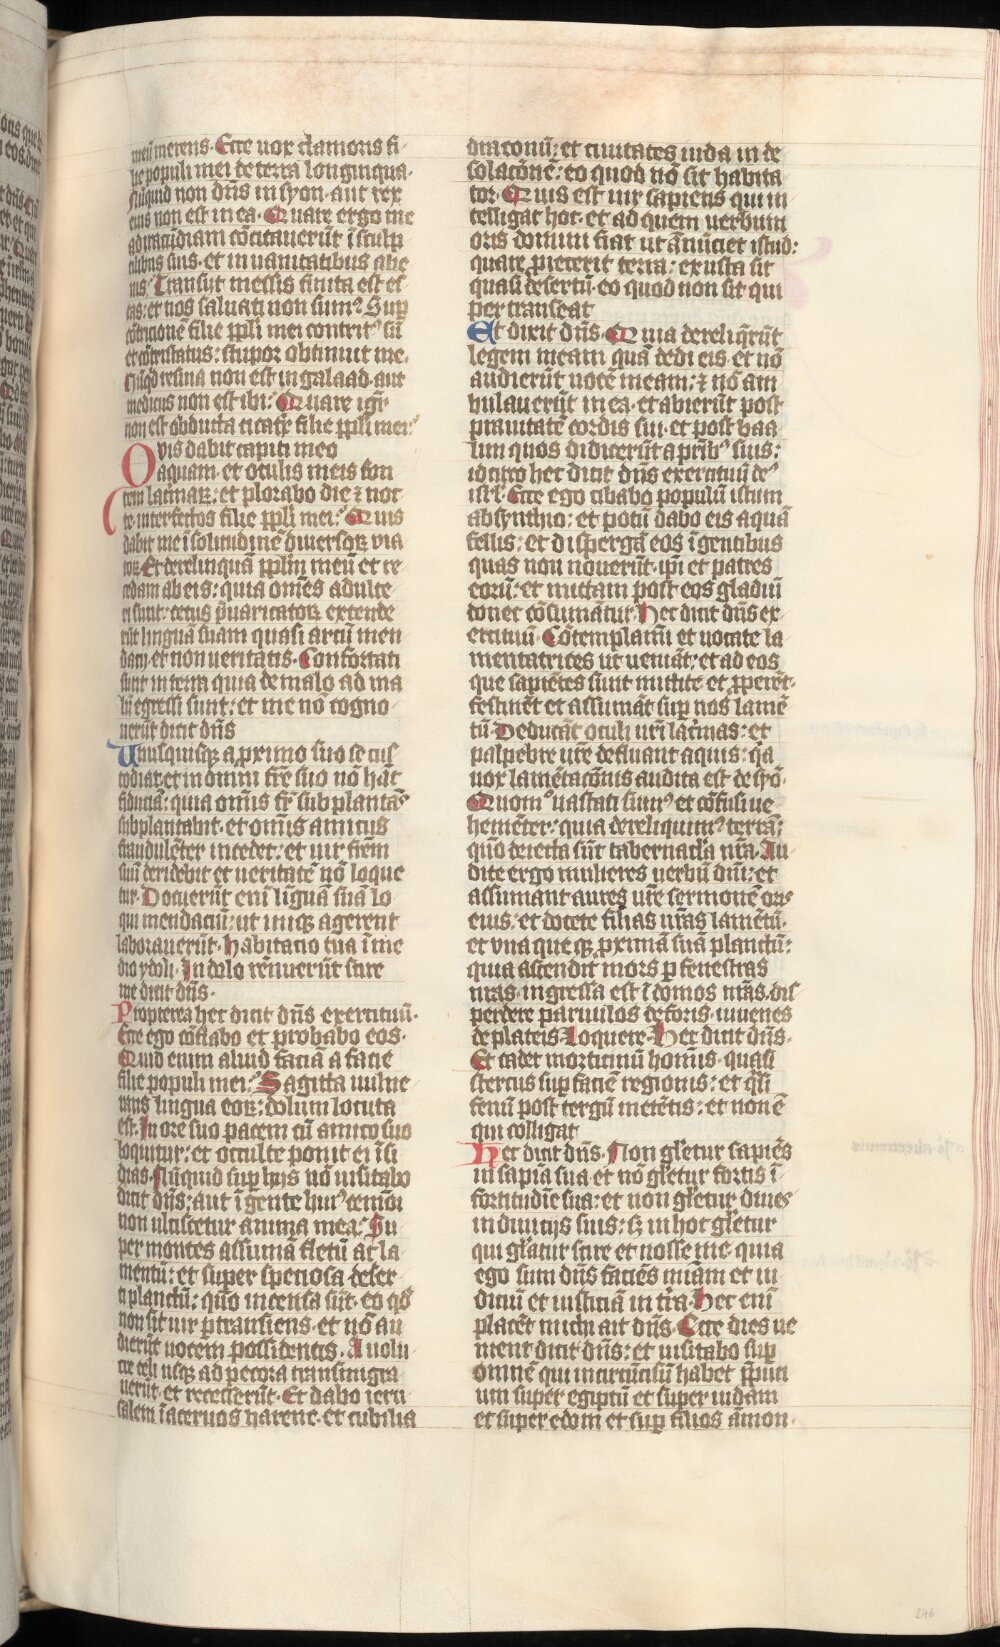 meū merens. Ecce uox clamoris fi
lie populi mei de terra longinqua.
Nūquid non dn̄s in syon. aut rex
eius non est in ea. Quare ergo me
ad iracūdiam cōcitauerūt ī sculp
tilibus suis. et in uanitatibus alie
nis. Transiit messis finita est es
tas: et nos saluati non sumꝰ. Sup
cōtricione filie ppl̄i mei contritꝰ sū
et cōtristatus: stupor obtinuit me.
Nūqd resina non est in galaad. aut
medicus non est ibi. Quare igr̄
non est obducta cicatrix filie ppl̄i mei.
Quis dabit capiti meo
aquam. et oculis meis fon
tem lacrimaꝝ: et plorabo die ⁊ noc
te. interfectos filie ppl̄i mei. Quis
dabit me ī solitudinē diuersoꝝ uia
toꝝ. Et derelinquā pplm̄ meū et re
cedam ab eis: quia om̄es adulte
ri sunt: cetus p̄uaricatoꝝ. extende
rūt linguā suam quasi arcū men
dacij et non ueritatis. Confortati
sunt in terra quia de malo ad ma
lū egressi sunt: et me nō cogno
uerūt dicit dn̄s
Unusquisqꝫ a proximo suo se cus
todiat. et in omni fr̄e suo nō hāt
fiduciā: quia om̄is fr̄ subplantās
subplantabit. et om̄is amicus
fraudulēter incedet: et uir fr̄em
suū deridebit et ueritatē nō loque
tur. Docuerūt eni līguā suā lo
qui mendaciū: ut iniqꝫ agerent
laborauerūt. Habitatio tua ī me
dio ydoli. In dolo rēnuerūt scire
me dicit dn̄s.
Propterea hec dicit dn̄s exercituū.
Ecce ego cōflabo et probabo eos.
Quid enim aliud faciā a facie
filie populi mei. Sagitta uulne
rans lingua eoꝝ: dolum locuta
est. In ore suo pacem cū amico suo
loquitur: et occulte ponit ei īsi
dias. Nūquid sup hijs nō uisitabo
dicit dn̄s: aut ī gente huiꝰcemōi
non ulciscetur anima mea. Su
per montes assumā fletū ac la
mentū: et super speciosa deser
ti planctū: qm̄ incensa sūt. eo qd̄
non sit uir ptransiens. et nō au
dierūt uocem possidentis. A uolu
cre celi usqꝫ ad pecora transmigra
uerūt. et recesserūt. Et dabo ieru
salem ī aceruos harene. et cubilia
draconū: et ciuitates iuda in de
solacōnē: eo quod nō sit habita
tor. Quis est uir sapiens qui in
telligat hoc. et ad quem uerbum
oris domini fiat ut ānunciet istud:
quare perierit terra: exusta sit
quasi desertū. eo quod non sit qui
per transeat
Et dixit dn̄s. Quia dereliq̄rūt
legem meam quā dedi eis et nō
audierūt uocē meam: ⁊ nō am
bulauerūt in ea. et abierūt post
prauitatē cordis sui. et post baa
lim quos didicerūt a prībꝰ suis:
idcirco hec dicit dn̄s exercituū deꝰ
isrl̄. Ecce ego cibabo populū istum
absynthio: et potū dabo eis aquā
fellis: et dispergā eos ī gentibus
quas non nouerūt. ip̄i et patres
eorū: et mittam post eos gladiū
donec cōsumātur. Hec dicit dn̄s ex
ercituū. Cōtemplamī et uocate la
mentatrices ut ueniāt: et ad eos
que sapiētes sunt mittite et pperēt.
festinēt et assumāt sup nos lamē
tū. Deducāt oculi nr̄i lac̄mas: et
palpebre nr̄e defluant aquis: q̄a
uox lamētacōnis audita est de syō.
Quomꝰ uastati sumꝰ et cōfusi ue
hemēter: quia dereliquimꝰ terrā:
qm̄ deiecta sūt tabernacl̄a nr̄a. Au
dite ergo mulieres uerbū dn̄i: et
assumant aures ur̄e sermonē oris
eius: et docete filias ur̄as lamētū.
et vna queqꝫ proximā suā planctū:
quia ascendit mors p fenestras
nr̄as. ingressa est ī domos nr̄as. dis
perdere paruulos de foris. iuuenes
de plateis. Loquere. Hec dicit dn̄s.
Et cadet morticinū hominis. quasi
stercus sup faciē regionis: et q̄si
fenū post tergū metētis: et non ē
qui colligat
Hec dicit dn̄s. Non gl̄etur sapiēs
in sapīa sua et nō gl̄etur fortis ī
fortitudīe sua: et non gl̄etur diues
in diuicijs suis: s; in hoc gl̄etur
qui gl̄atur scire et nosse me quia
ego sum dn̄s faciēs mīam et iu
diciū et iusticiā in t̄ra. Hec enī
placēt michi ait dn̄s. Ecce dies ue
nient dicit dn̄s: et uisitabo sup
omnē qui incircūcisū habet p̄puci
um super egiptū et super iudam
et super edom et sup filios āmon.
276